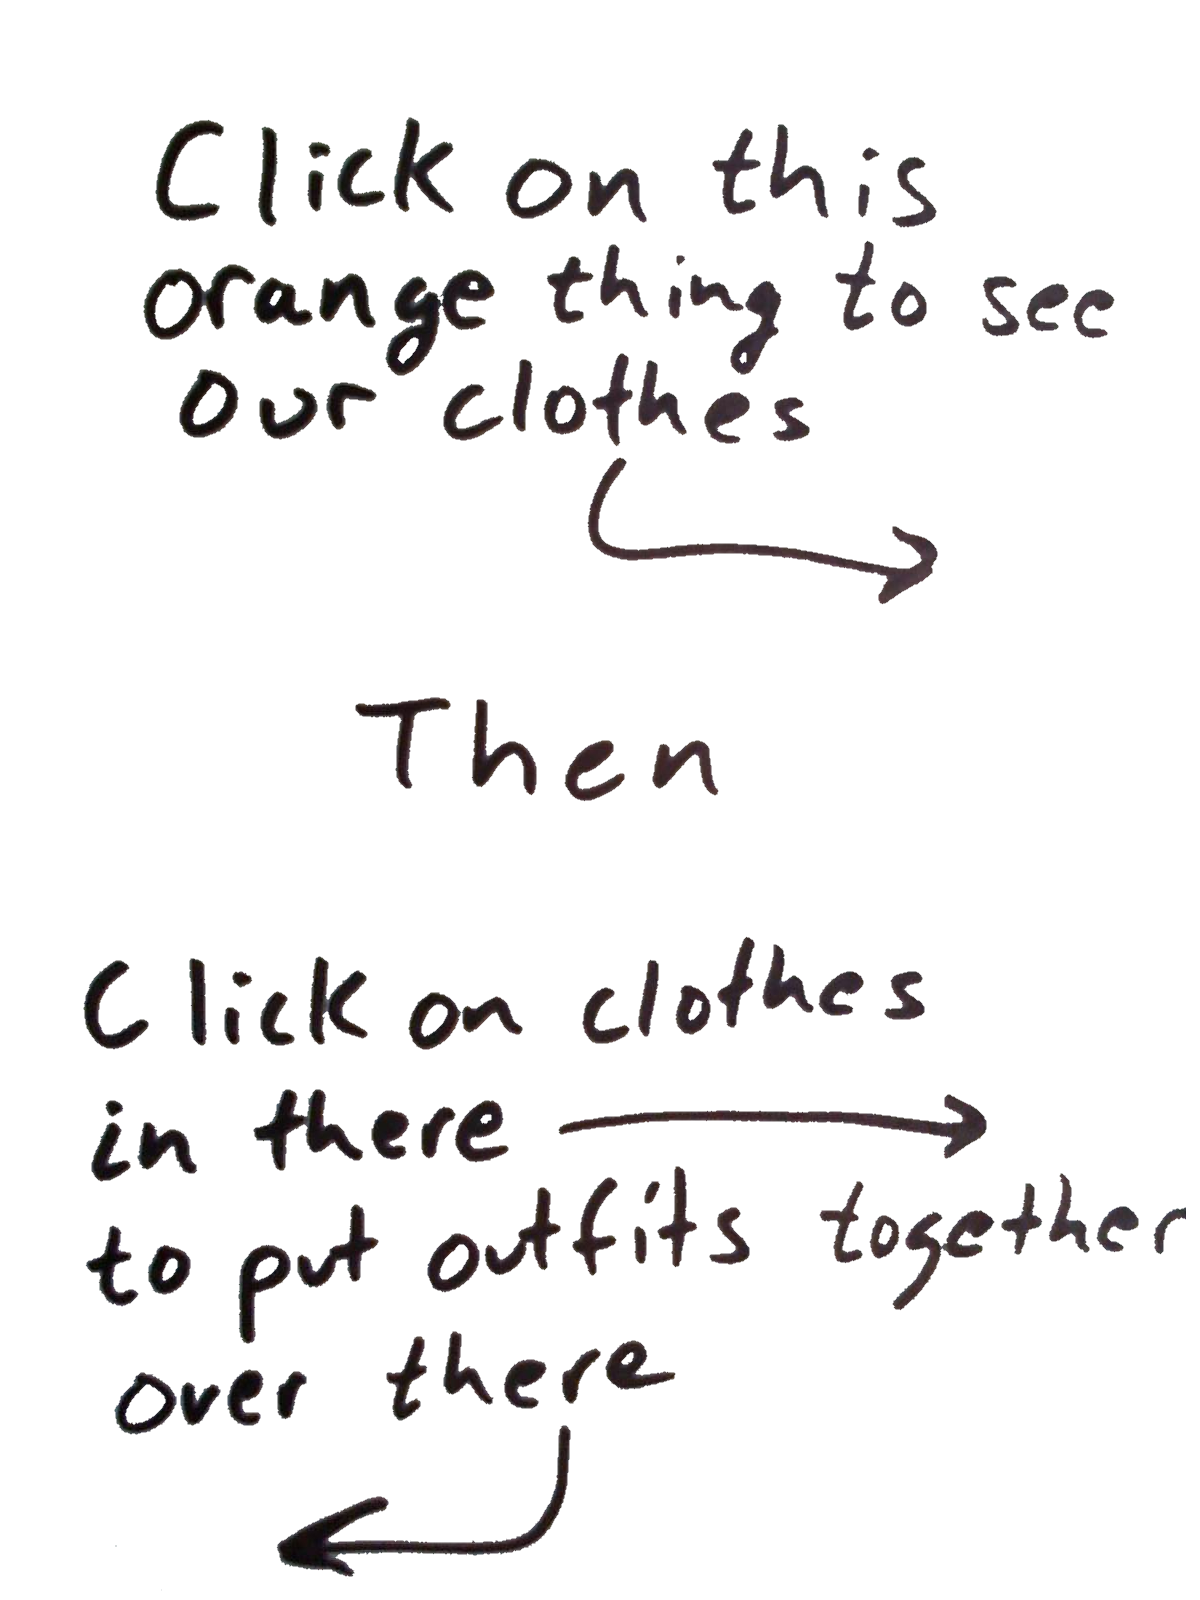 Click on this
orange thing to see
our clothes
Then
Click on clothes
in there
to put outfits together
over there